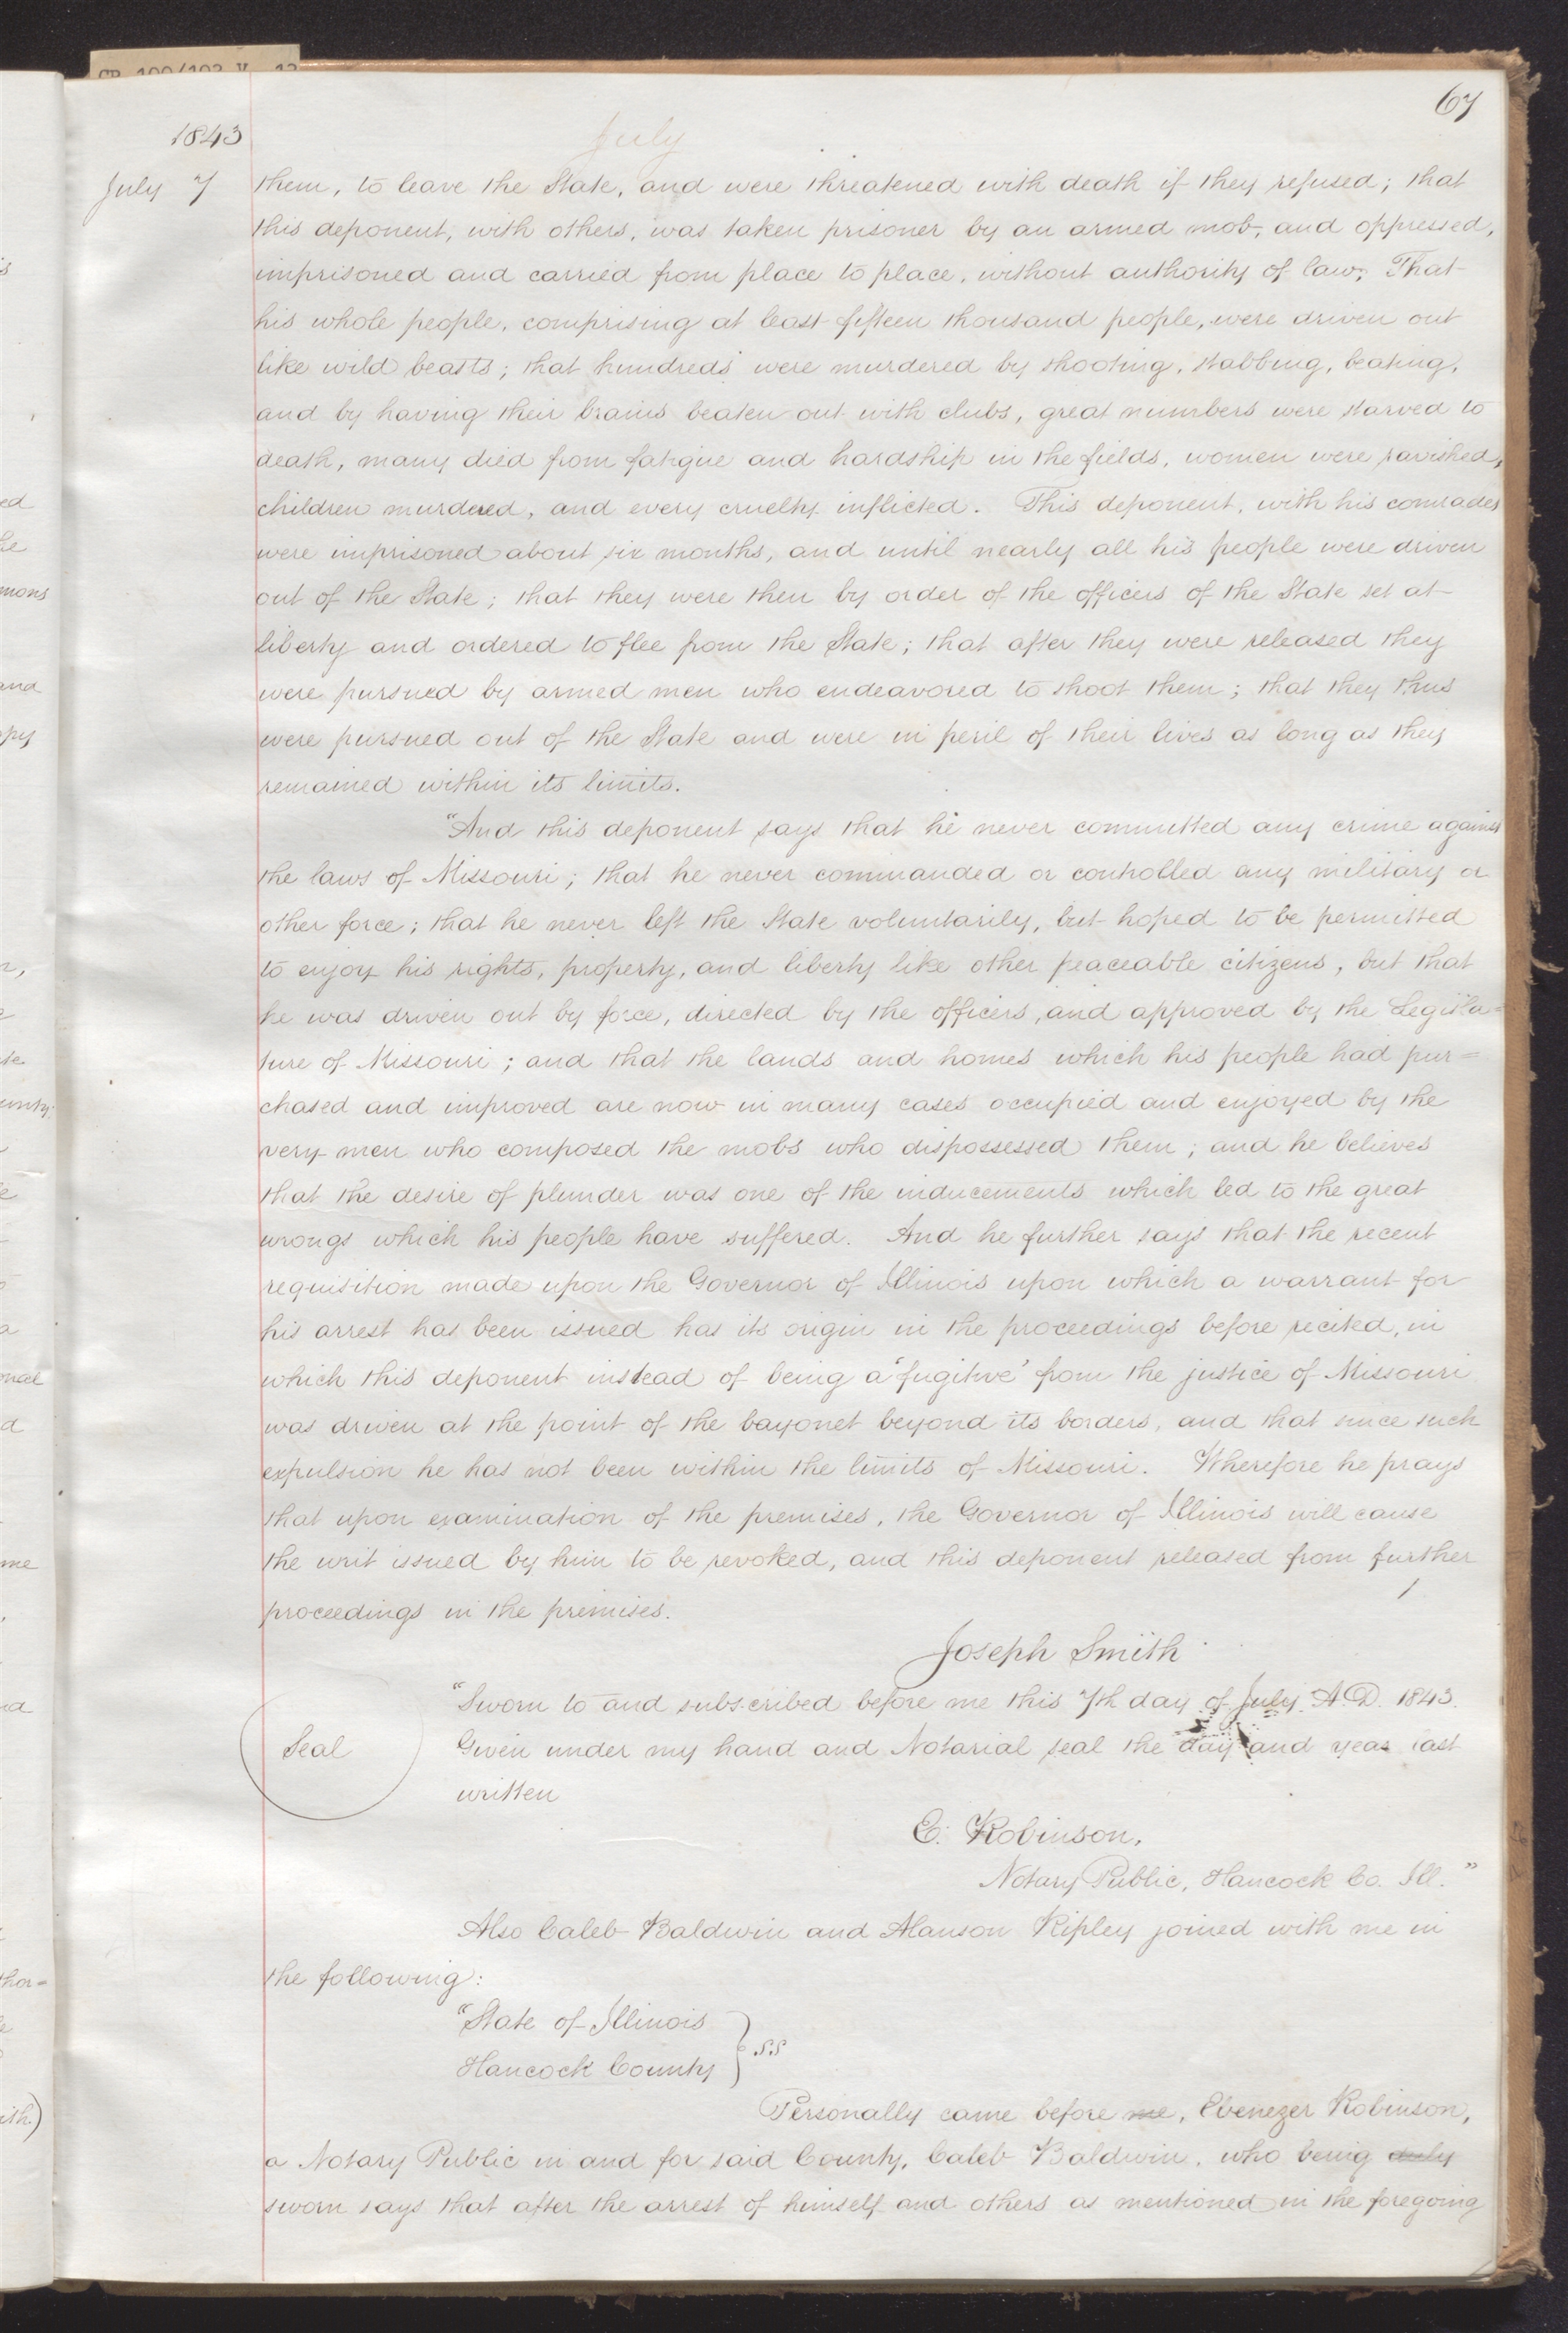 CP 100/102 V. 12
67
1843
July
July 7
them, to leave the State, and were threatened with death if they refused; that
this deponent, with others, was taken prisoner by an armed mob, and oppressed,
imprisoned and carried from place to place, without authority of law; That
his whole people, comprising at least fifteen thousand people, were driven out
like wild beasts; that hundreds were murdered by shooting, stabbing, beating,
and by having their brains beaten out with clubs, great numbers were starved to
death, many died from fatigue and hardship in the fields, women were ravished,
children murdered, and every cruelty inflicted. This deponent, with his comrades
were imprisoned about six months, and until nearly all his people were driven
out of the State; that they were then by order of the officers of the State set at
liberty and ordered to flee from the State; that after they were released they
were pursued by armed men who endeavored to shoot them; that they thus
were pursued out of the State and were in peril of their lives as long as they
remained within its limits.
"And this deponent says that he never committed any crime against
the laws of Missouri; that he never commanded or controlled any military or
other force; that he never left the State voluntarily, but hoped to be permitted
to enjoy his rights, property, and liberty like other peaceable citizens, but that
he was driven out by force, directed by the officers, and approved by the Legisla=
ture of Missouri; and that the lands and homes which his people had pur=
chased and improved are now in many cases occupied and enjoyed by the
very men who composed the mobs who dispossessed them; and he believes
that the desire of plunder was one of the inducements which led to the great
wrongs which his people have suffered. And he further says that the recent
requisition made upon the Governor of Illinois upon which a warrant for
his arrest has been issued has its origin in the proceedings before recited, in
which this deponent instead of being a 'fugitive' from the justice of Missouri
was driven at the point of the bayonet beyond its borders, and that since such
expulsion he has not been within the limits of Missouri. Wherefore he prays
that upon examination of the premises, the Governor of Illinois will cause
the writ issued by him to be revoked, and this deponent released from further
proceedings in the premises.
Joseph Smith
"Sworn to and subscribed before me this 7th day of July A.D. 1843.
Seal
Given under my hand and Notarial seal the day and year last
written
E. Robinson,
Notary Public, Hancock Co. Ill."
Also Caleb Baldwin and Alanson Ripley joined with me in
the following:
"State of Illinois
Hancock County } S.S
Personally came before me, Ebenezer Robinson,
a Notary Public in and for said County, Caleb Baldwin, who being duly
sworn says that after the arrest of himself and others as mentioned in the foregoing